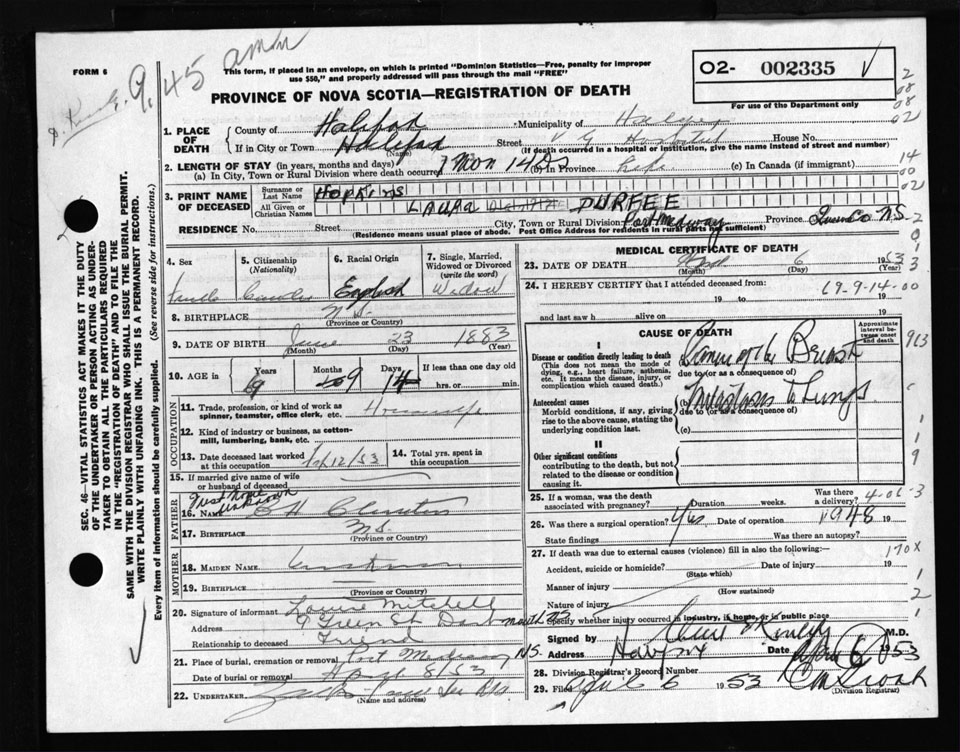 FORM 6
9.45 am
This form, if placed in an envelope, on which is printed "Dominion Statistics—Free, penalty for improper
use $50," and properly addressed will pass through the mail "FREE"
PROVINCE OF NOVA SCOTIA—REGISTRATION OF DEATH
O2- 002335
For use of the Department only
1. PLACE OF DEATH
County of Halifax Municipality of
If in City or Town Halifax Street V G Hospital House No.
(Name) (If death occurred in a hospital or institution, give the name instead of street and number)
2. LENGTH OF STAY (in years, months and days)
(a) In City, Town or Rural Division where death occurred 1 Mon 14 Ds (b) In Province Life (c) In Canada (if immigrant)
3. PRINT NAME OF DECEASED
Surname or Last Name HOPKINS
All Given or Christian Names LAURA DURFEE
RESIDENCE No. Street City, Town or Rural Division Port Medway Province Queens Co N.S.
(Residence means usual place of abode. Post Office Address for residents in rural parts not sufficient)
4. Sex
Female
5. Citizenship (Nationality)
6. Racial Origin
English
7. Single, Married, Widowed or Divorced (write the word)
Widow
8. BIRTHPLACE N.S.
(Province or Country)
9. DATE OF BIRTH June 23 1883
(Month) (Day) (Year)
10. AGE in Years Months Days If less than one day old
69 9 14 hrs. or min.
OCCUPATION
11. Trade, profession, or kind of work as spinner, teamster, office clerk, etc. Housewife
12. Kind of industry or business, as cotton-mill, lumbering, bank, etc.
13. Date deceased last worked at this occupation Feb 12/53
14. Total yrs. spent in this occupation
15. If married give name of wife or husband of deceased
FATHER
First name unknown
16. Name
17. BIRTHPLACE N.S.
(Province or Country)
MOTHER
18. MAIDEN NAME Unknown
19. BIRTHPLACE
(Province or Country)
20. Signature of informant Louise Mitchell
Address 9 Green St Dartmouth NS
Relationship to deceased Friend
21. Place of burial, cremation or removal Port Medway N.S.
Date of burial or removal April 8/53
22. UNDERTAKER
(Name and address)
MEDICAL CERTIFICATE OF DEATH
23. DATE OF DEATH 6 1953
(Month) (Day) (Year)
24. I HEREBY CERTIFY that I attended deceased from:
69-9-14-00
19 to 19
and last saw h alive on 19
CAUSE OF DEATH
Approximate interval between onset and death
I
Disease or condition directly leading to death
(This does not mean the mode of dying, e.g., heart failure, asthenia, etc. It means the disease, injury, or complication which caused death.)
Breast
due to (or as a consequence of)
Antecedent causes
Morbid conditions, if any, giving rise to the above cause, stating the underlying condition last.
Metastasis to Lungs
due to (or as a consequence of)
(c)
II
Other significant conditions
contributing to the death, but not related to the disease or condition causing it.
25. If a woman, was the death associated with pregnancy? Duration weeks. Was there a delivery?
26. Was there a surgical operation? Yes Date of operation 1948 19
State findings Was there an autopsy?
27. If death was due to external causes (violence) fill in also the following:—
170X
Accident, suicide or homicide? Date of injury 19
(State which)
Manner of injury
(How sustained)
Nature of injury
Specify whether injury occurred in industry, in home, or in public place
Signed by M.D.
Address Halifax Date April 6 1953
28. Division Registrar's Record Number
29. Filed April 6 1953
(Division Registrar)
SEC. 46—VITAL STATISTICS ACT MAKES IT THE DUTY
OF THE UNDERTAKER OR PERSON ACTING AS UNDER-
TAKER TO OBTAIN ALL THE PARTICULARS REQUIRED
IN THE "REGISTRATION OF DEATH" AND TO FILE THE
SAME WITH THE DIVISION REGISTRAR WHO SHALL ISSUE THE BURIAL PERMIT.
WRITE PLAINLY WITH UNFADING INK. THIS IS A PERMANENT RECORD.
Every item of information should be carefully supplied. (See reverse side for instructions.)